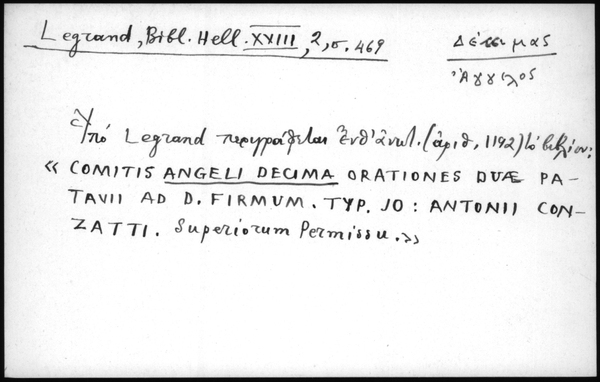 Legrand, Bibl. Hell. XXIII, 2, σ. 469
Δέκιμας
Ἄγγελος
Ὑπό Legrand περιγράφεται ἔνθ' ἀνωτ. (ἀριθ. 1192) τό βιβλίον:
« COMITIS ANGELI DECIMA ORATIONES DUÆ PA-
TAVII AD D. FIRMUM. TYP. JO: ANTONII CON-
ZATTI. Superiorum Permissu.»